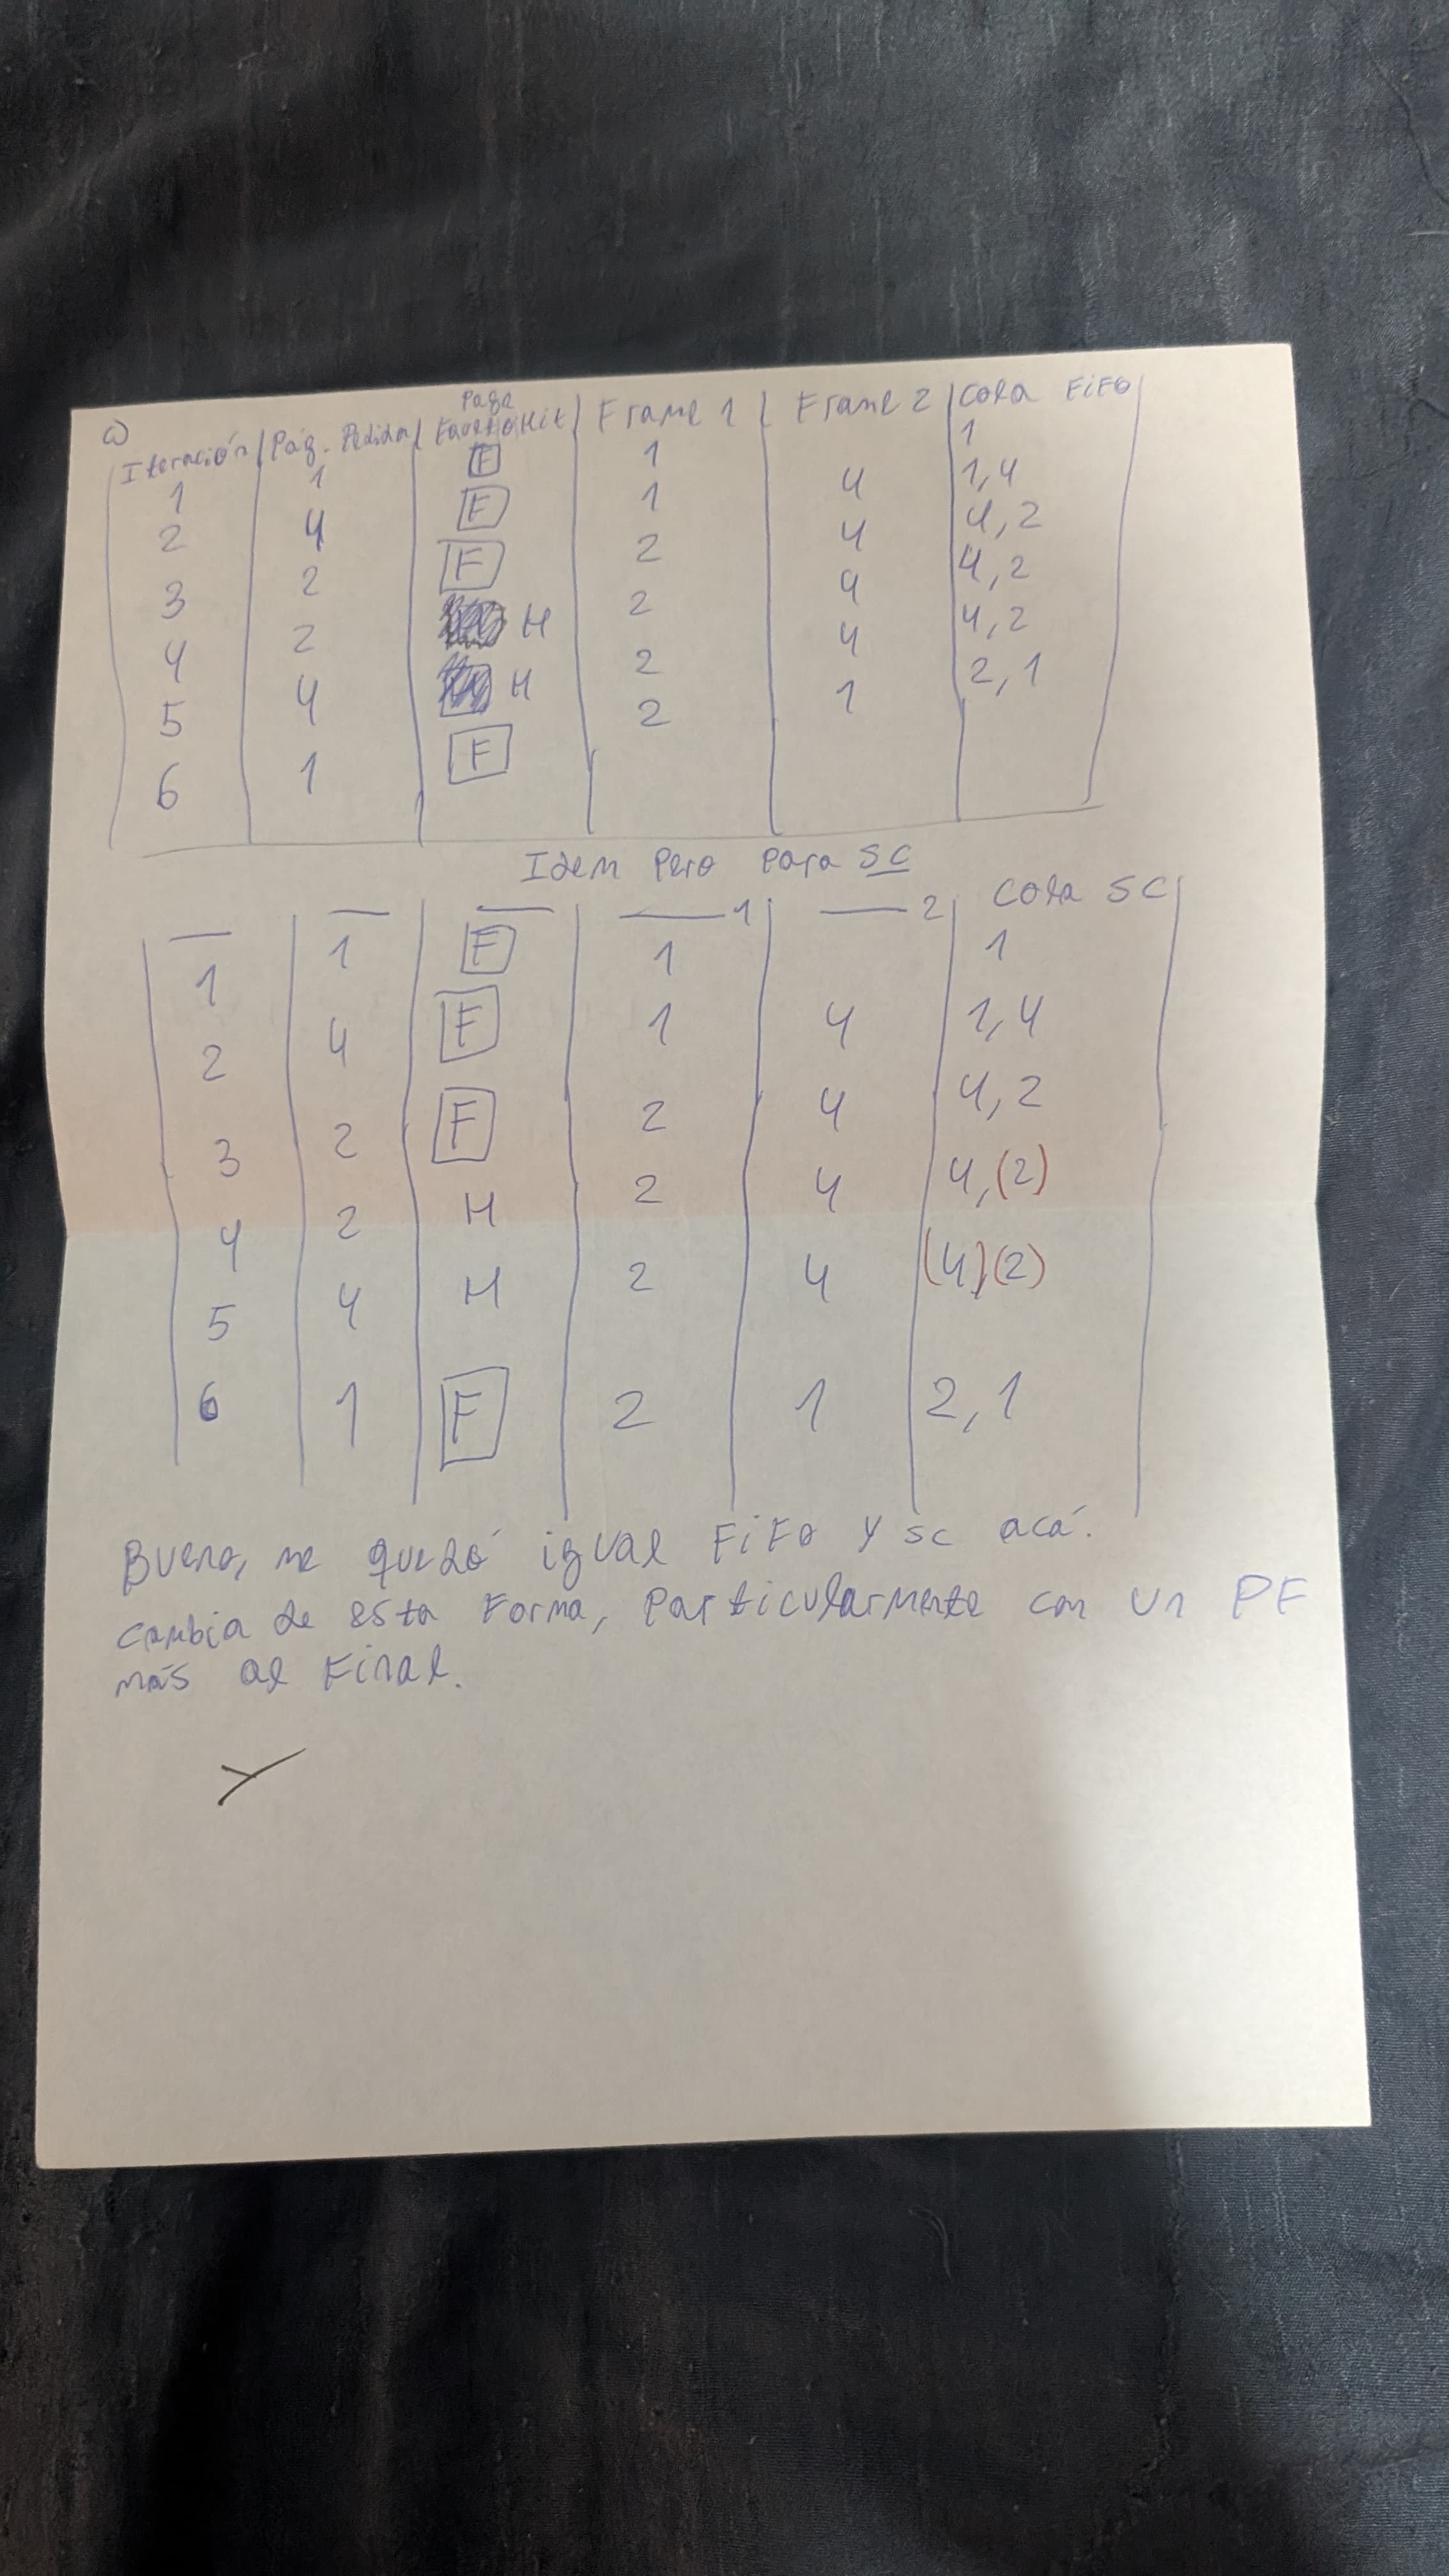 a)
Iteración | Pág. Pedida | Page Fault o Hit | Frame 1 | Frame 2 | Cola FiFo
1 | 1 | F | 1 | | 1
2 | 4 | F | 1 | 4 | 1,4
3 | 2 | F | 2 | 4 | 4,2
4 | 2 | H | 2 | 4 | 4,2
5 | 4 | H | 2 | 4 | 4,2
6 | 1 | F | 2 | 1 | 2,1
Idem Pero Para SC
— | — | — | — 1 | — 2 | Cola SC
1 | 1 | F | 1 | | 1
2 | 4 | F | 1 | 4 | 1,4
3 | 2 | F | 2 | 4 | 4,2
4 | 2 | H | 2 | 4 | 4,(2)
5 | 4 | H | 2 | 4 | (4)(2)
6 | 1 | F | 2 | 1 | 2,1
Bueno, me quedó igual FiFo y SC acá.
cambia de esta Forma, Particularmente con un PF
más al Final.